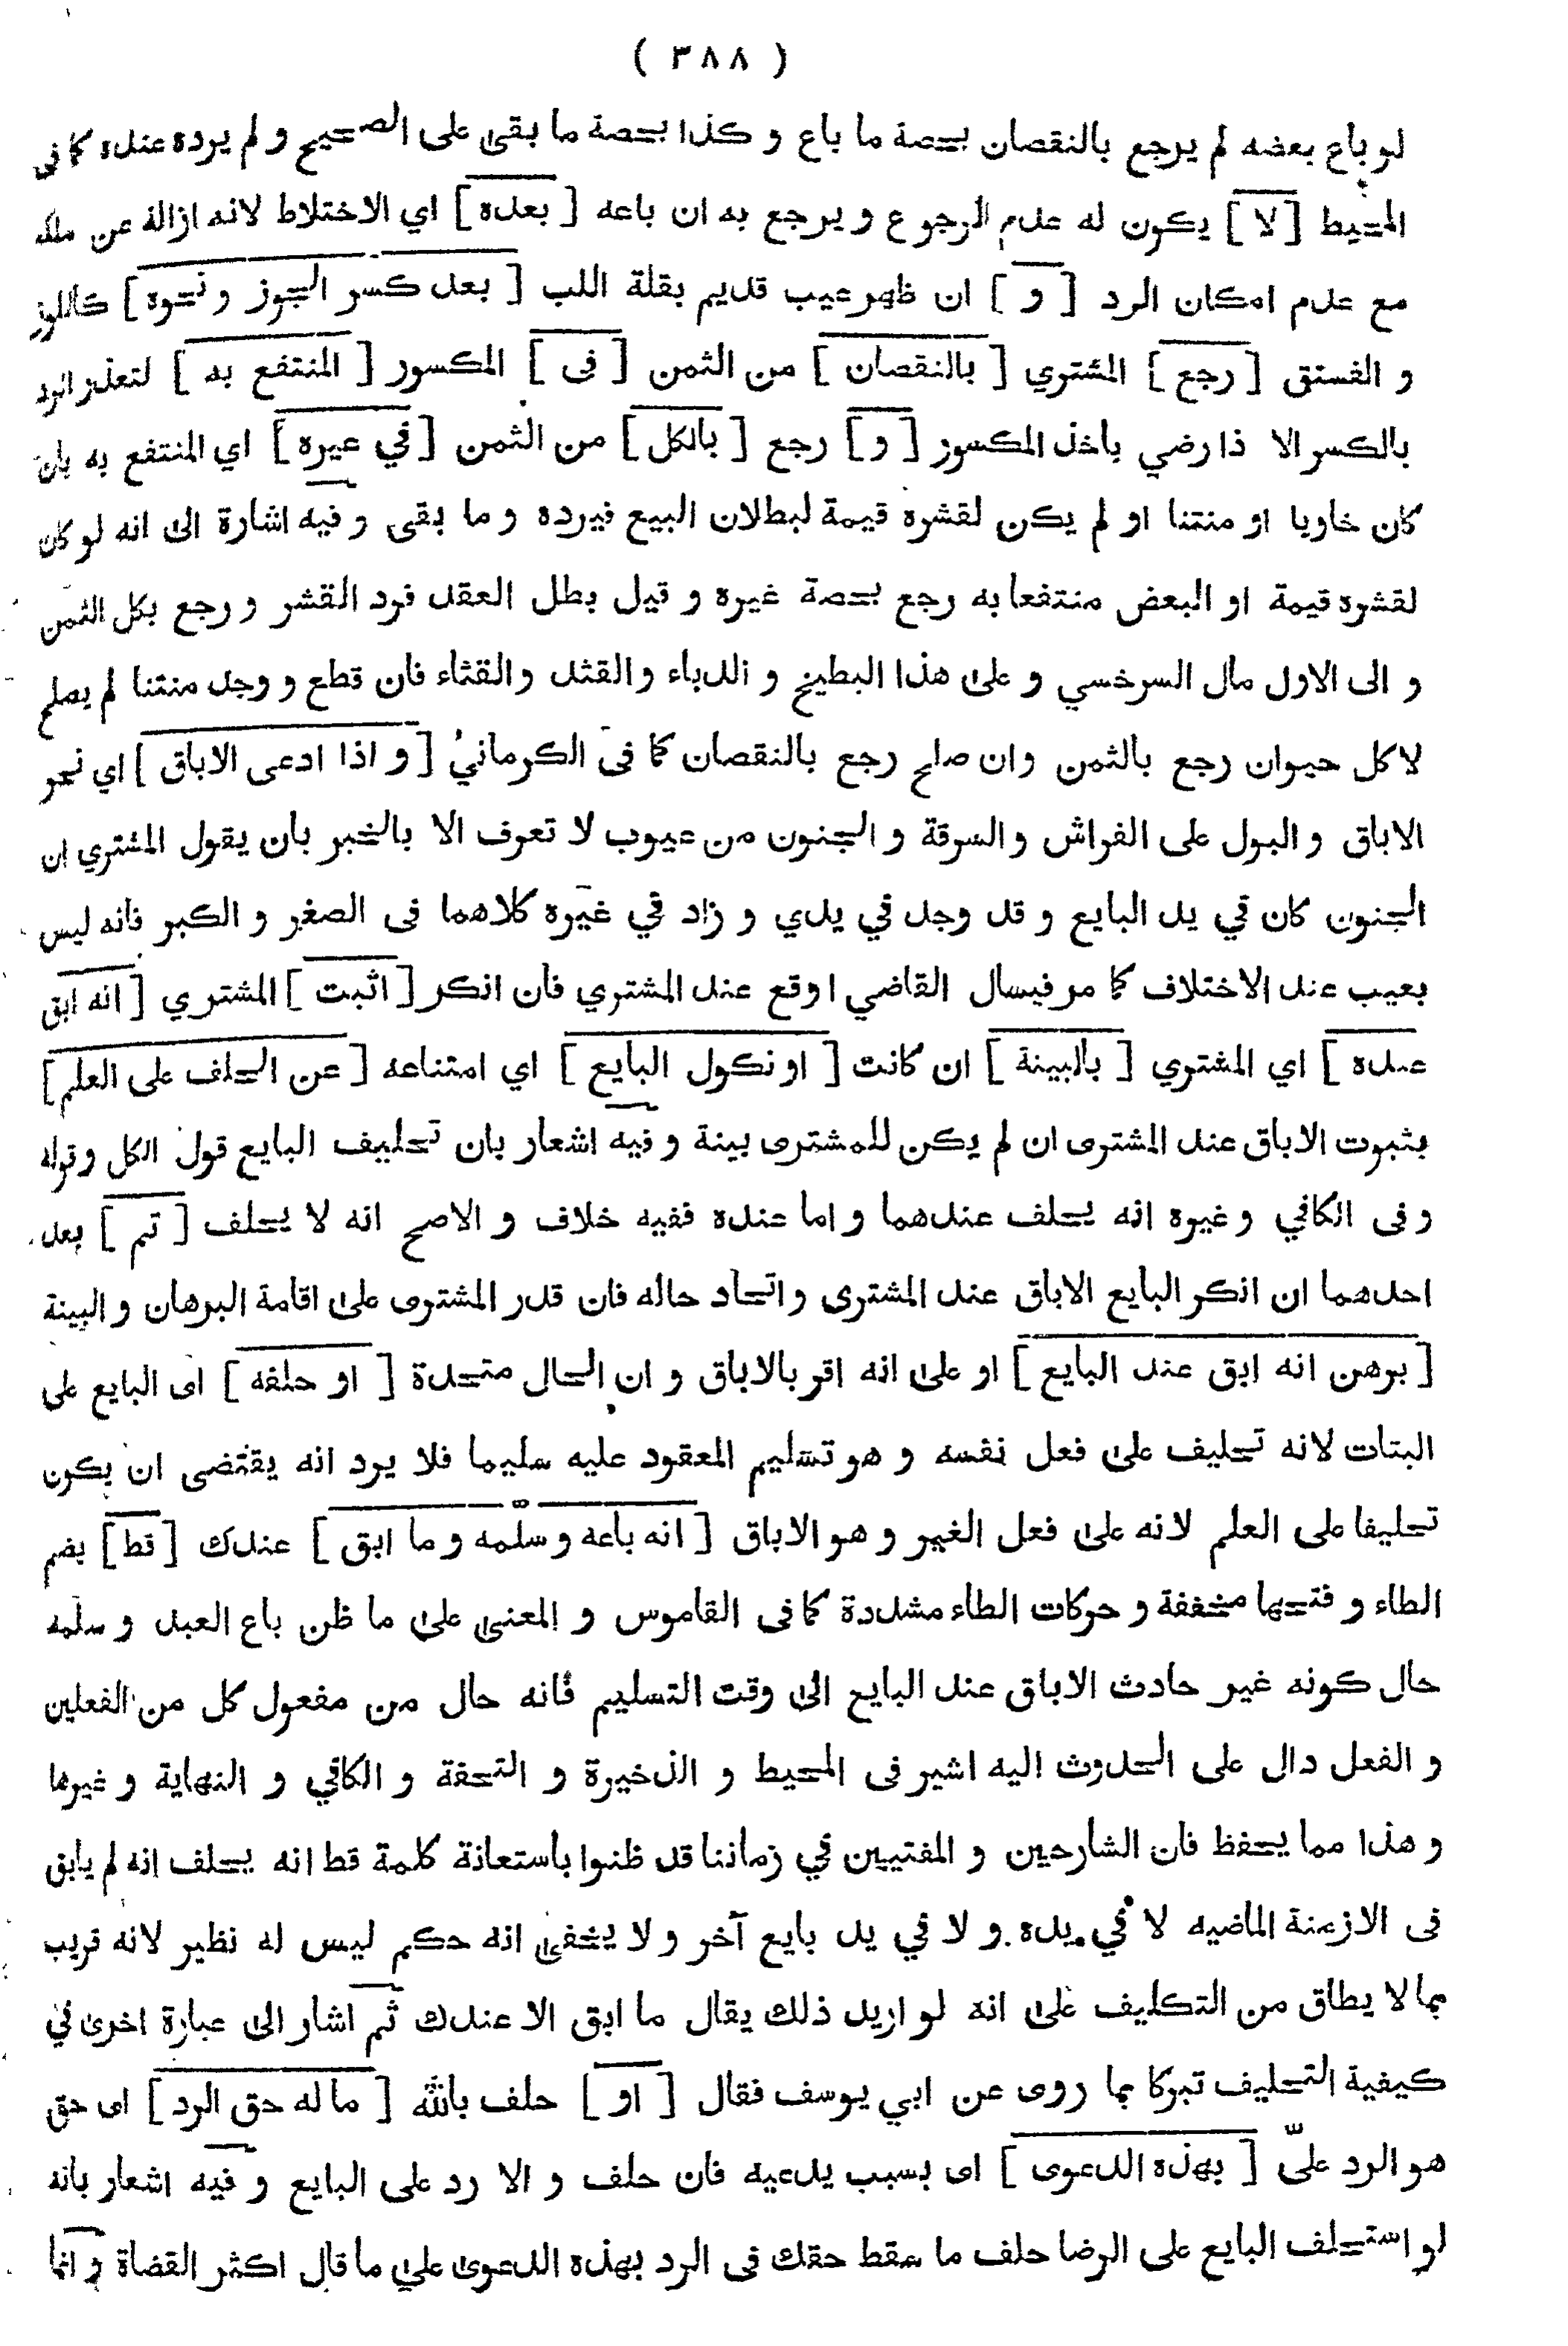 ( ٣٨٨ )
لو باع بعضه لم يرجع بالنقصان بحصة ما باع و كذا بحصة ما بقى على الصحيح و لم يرده عنده كما فى
المحيط [ لا ] يكون له عدم الرجوع و يرجع به ان باعه [ بعده ] اي الاختلاط لانه ازالة عن ملكه
مع عدم امكان الرد [ و ] ان ظهر عيب قديم بقلة اللب [ بعد كسر الجوز و نحوه ] كاللوز
و الفستق [ رجع ] المشتري [ بالنقصان ] من الثمن [ فى ] المكسور [ المنتفع به ] لتعذر الرد
بالكسر الا ذا رضي باخذ المكسور [ و ] رجع [ بالكل ] من الثمن [ في غيره ] اي المنتفع به بان
كان خاويا او منتنا او لم يكن لقشره قيمة لبطلان البيع فيرده و ما بقى و فيه اشارة الى انه لو كان
لقشره قيمة او البعض منتفعا به رجع بحصة غيره و قيل بطل العقد فرد القشر و رجع بكل الثمن
و الى الاول مال السرخسي و على هذا البطيخ و الدباء و القثد و القثاء فان قطع و وجد منتنا لم يصلح
لاكل حيوان رجع بالثمن و ان صلح رجع بالنقصان كما فى الكرماني [ و اذا ادعى الاباق ] اي نحو
الاباق و البول على الفراش و السرقة و الجنون من عيوب لا تعرف الا بالخبر بان يقول المشتري ان
الجنون كان في يد البايع و قد وجد في يدي و زاد في غيره كلاهما فى الصغر و الكبر فانه ليس
بعيب عند الاختلاف كما مر فيسال القاضي اوقع عند المشتري فان انكر [ اثبت ] المشتري [ انه ابق
عنده ] اي المشتري [ بالبينة ] ان كانت [ او نكول البايع ] اي امتناعه [ عن الحلف على العلم ]
بثبوت الاباق عند المشترى ان لم يكن للمشترى بينة و فيه اشعار بان تحليف البايع قول الكل و قوله
و فى الكافي و غيره انه يحلف عندهما و اما عنده ففيه خلاف و الاصح انه لا يحلف [ ثم ] بعد
احدهما ان انكر البايع الاباق عند المشترى و اتحاد حاله فان قدر المشترى على اقامة البرهان و البينة
[ برهن انه ابق عند البايع ] او على انه اقر بالاباق و ان الحال متحدة [ او حلفه ] اى البايع على
البتات لانه تحليف على فعل نفسه و هو تسليم المعقود عليه سليما فلا يرد انه يقتضى ان يكون
تحليفا على العلم لانه على فعل الغير و هو الاباق [ انه باعه و سلّمه و ما ابق ] عندك [ قط ] بضم
الطاء و فتحها مخففة و حركات الطاء مشددة كما فى القاموس و المعنى على ما ظن باع العبد و سلمه
حال كونه غير حادث الاباق عند البايع الى وقت التسليم فانه حال من مفعول كل من الفعلين
و الفعل دال على الحدوث اليه اشير فى المحيط و الذخيرة و التحفة و الكافي و النهاية و غيرها
و هذا مما يحفظ فان الشارحين و المفتيين في زماننا قد ظنوا باستعانة كلمة قط انه يحلف انه لم يابق
فى الازمنة الماضيه لا في يده و لا في يد بايع آخر و لا يخفى انه حكم ليس له نظير لانه قريب
بما لا يطاق من التكليف على انه لو اريد ذلك يقال ما ابق الا عندك ثم اشار الى عبارة اخرى في
كيفية التحليف تبركا بما روى عن ابي يوسف فقال [ او ] حلف بالله [ ما له حق الرد ] اى حق
هو الرد علىّ [ بهذه الدعوى ] اى بسبب يدعيه فان حلف و الا رد على البايع و فيه اشعار بانه
لو استحلف البايع على الرضا حلف ما سقط حقك فى الرد بهذه الدعوى على ما قال اكثر القضاة و انما